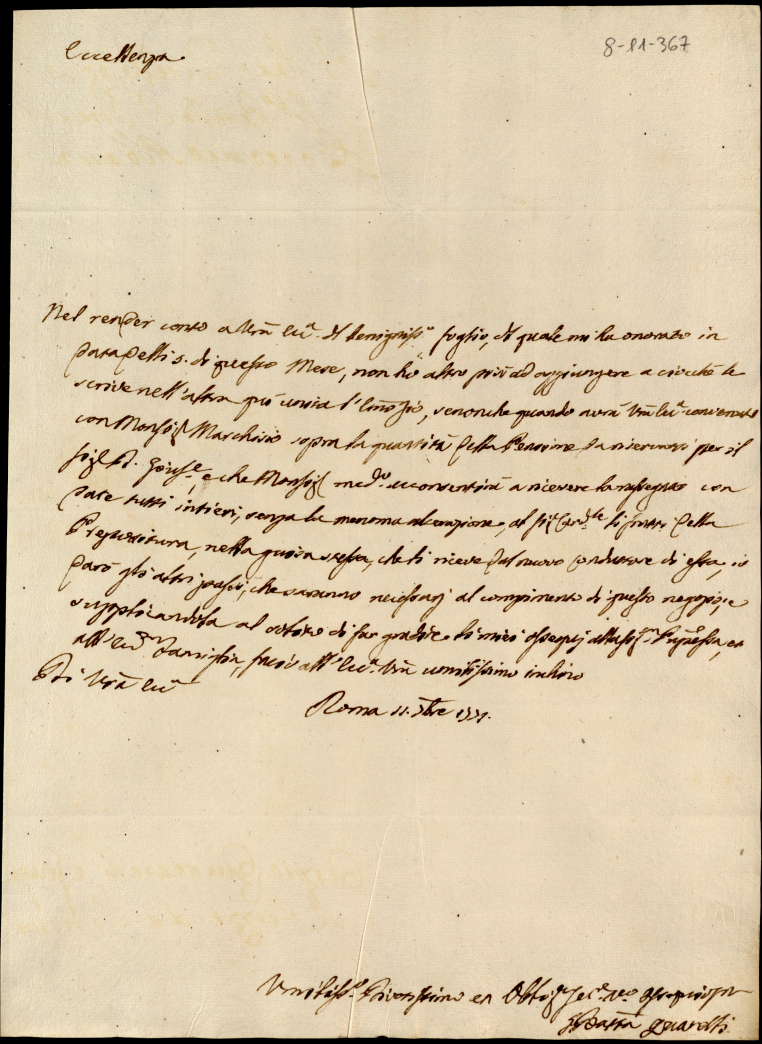 8-11-367
Eccellenza
Nel render conto a Vrã Ecc.ª del benigniss.º foglio, del quale mi ha onorato in
data delli 5. di questo Mese, non hò altro più ad aggiungere a ciocchè le
scrive nell'altra quì unita l' Zio, se non che quando avrà Vrã Ecc.ª convenuto
con Monsig.r Marchisio sopra la quantità della Pensione da riservarsi per il
Sig.r D. Giuse.e, e che Monsig.r med.º acconsentirà a ricevere la rassegna con
dare tutti intieri, senza la menoma alterazione, al Sig.r Card.le li frutti della
Prepositura, nella guisa stessa, che li riceve dal nuovo conduttore di essa, io
farò gli altri passi, che saranno necessarj al compimento di questo negozio, e
supplicandola al solito di far gradire li miei ossequj alla Sig.ra P̃npessa, ed
all' Ecc.ma Famiglia, faccio all' Ecc.ª Vrã umilissimo inchino
Di Vrã Ecc.ª
Roma 11. 7bre 1771.
Umiliss.º Divotissimo ed Obblig.
Battã